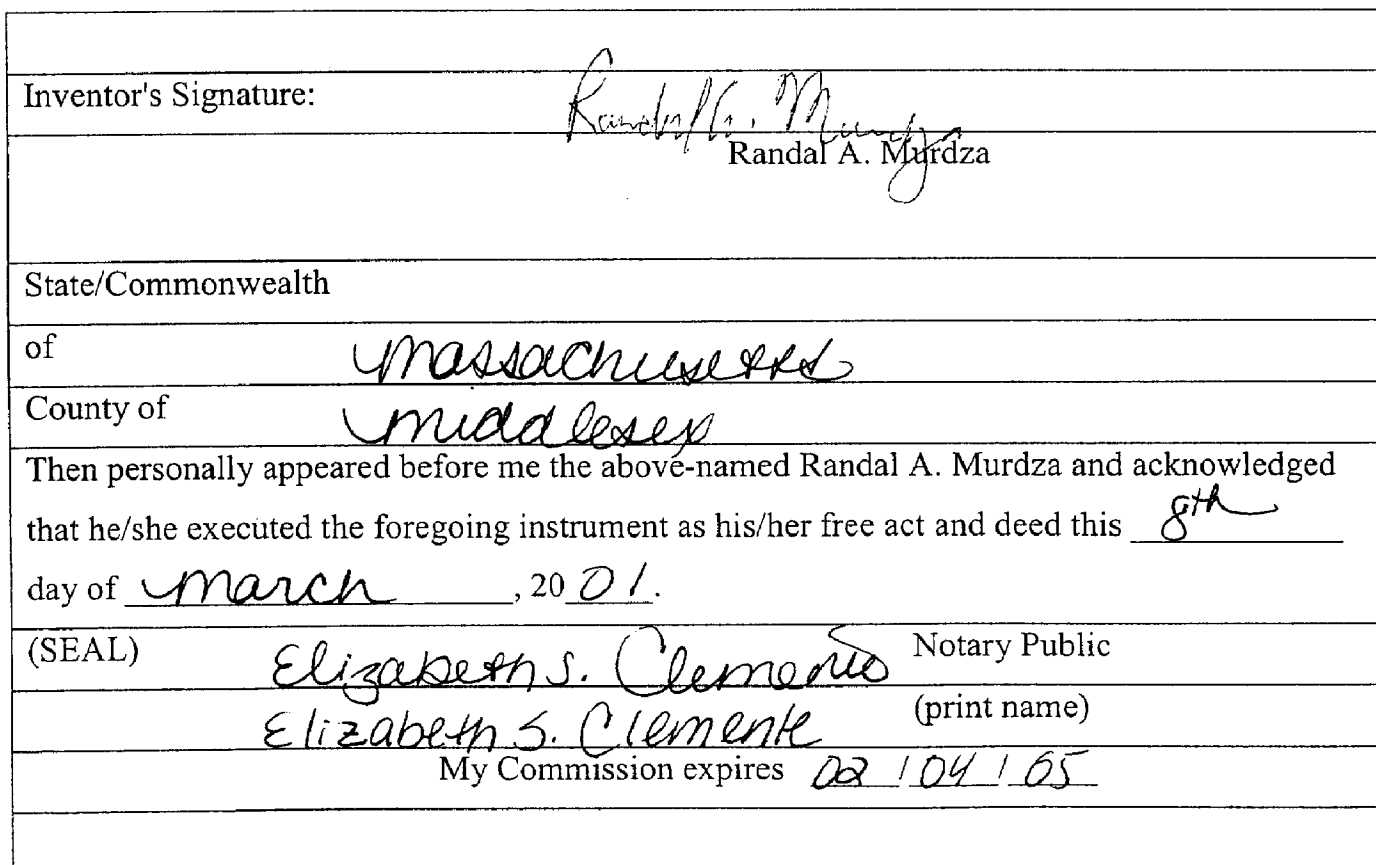 Inventor's Signature: Randal A. Murdza
Randal A. Murdza
State/Commonwealth
of Massachusetts
County of Middlesex
Then personally appeared before me the above-named Randal A. Murdza and acknowledged
that he/she executed the foregoing instrument as his/her free act and deed this 8th
day of March, 20 01.
(SEAL) Elizabeth S. Clemente Notary Public
Elizabeth S. Clemente (print name)
My Commission expires 02 / 04 / 05